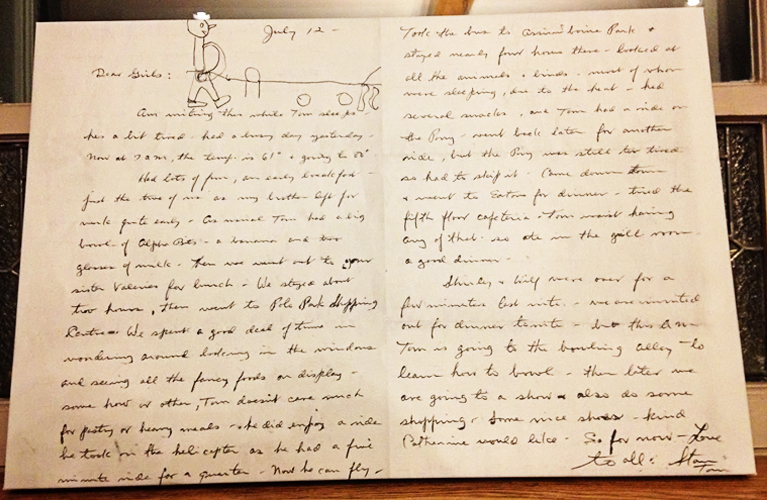 July 12 -
Dear Girls:
Am writing this while Tom sleeps -
he's a bit tired - had a busy day yesterday -
Now at 7 a.m. the temp. is 61° + going to 80°
Had lots of fun, an early breakfast -
just the two of us as my brother left for
work quite early - As usual Tom had a big
bowl of Alpha Bits - a banana and two
glasses of milk - Then we went out to your
sister Valeries for lunch - We stayed about
two hours, then went to Polo Park Shopping
Centre - We spent a good deal of time in
wondering around looking in the windows
and seeing all the fancy foods on display -
some how or other, Tom doesn't care much
for pastry or heavy meals - he did enjoy a ride
he took in the helicopter as he had a five
minute ride for a quarter - Now he can fly -
Took the bus to Assiniboine Park +
stayed nearly four hours there - looked at
all the animals + birds - most of whom
were sleeping, due to the heat - had
several snacks, and Tom had a ride on
the Pony - went back later for another
ride, but the Pony was still too tired
so had to skip it - Came down town
+ went to Eatons for dinner - tried the
fifth floor cafeteria - Tom wasn't having
any of that - so ate in the grill room -
a good dinner -
Shirley + were over for a
few minutes last nite - we are invited
out for dinner tonite - but this a.m.
Tom is going to the bowling alley - to
learn how to bowl - then later we
are going to a show + also do some
shopping - Some nice shoes - kind
Catharine would like - So for now - Love
to all: Stan
Tom